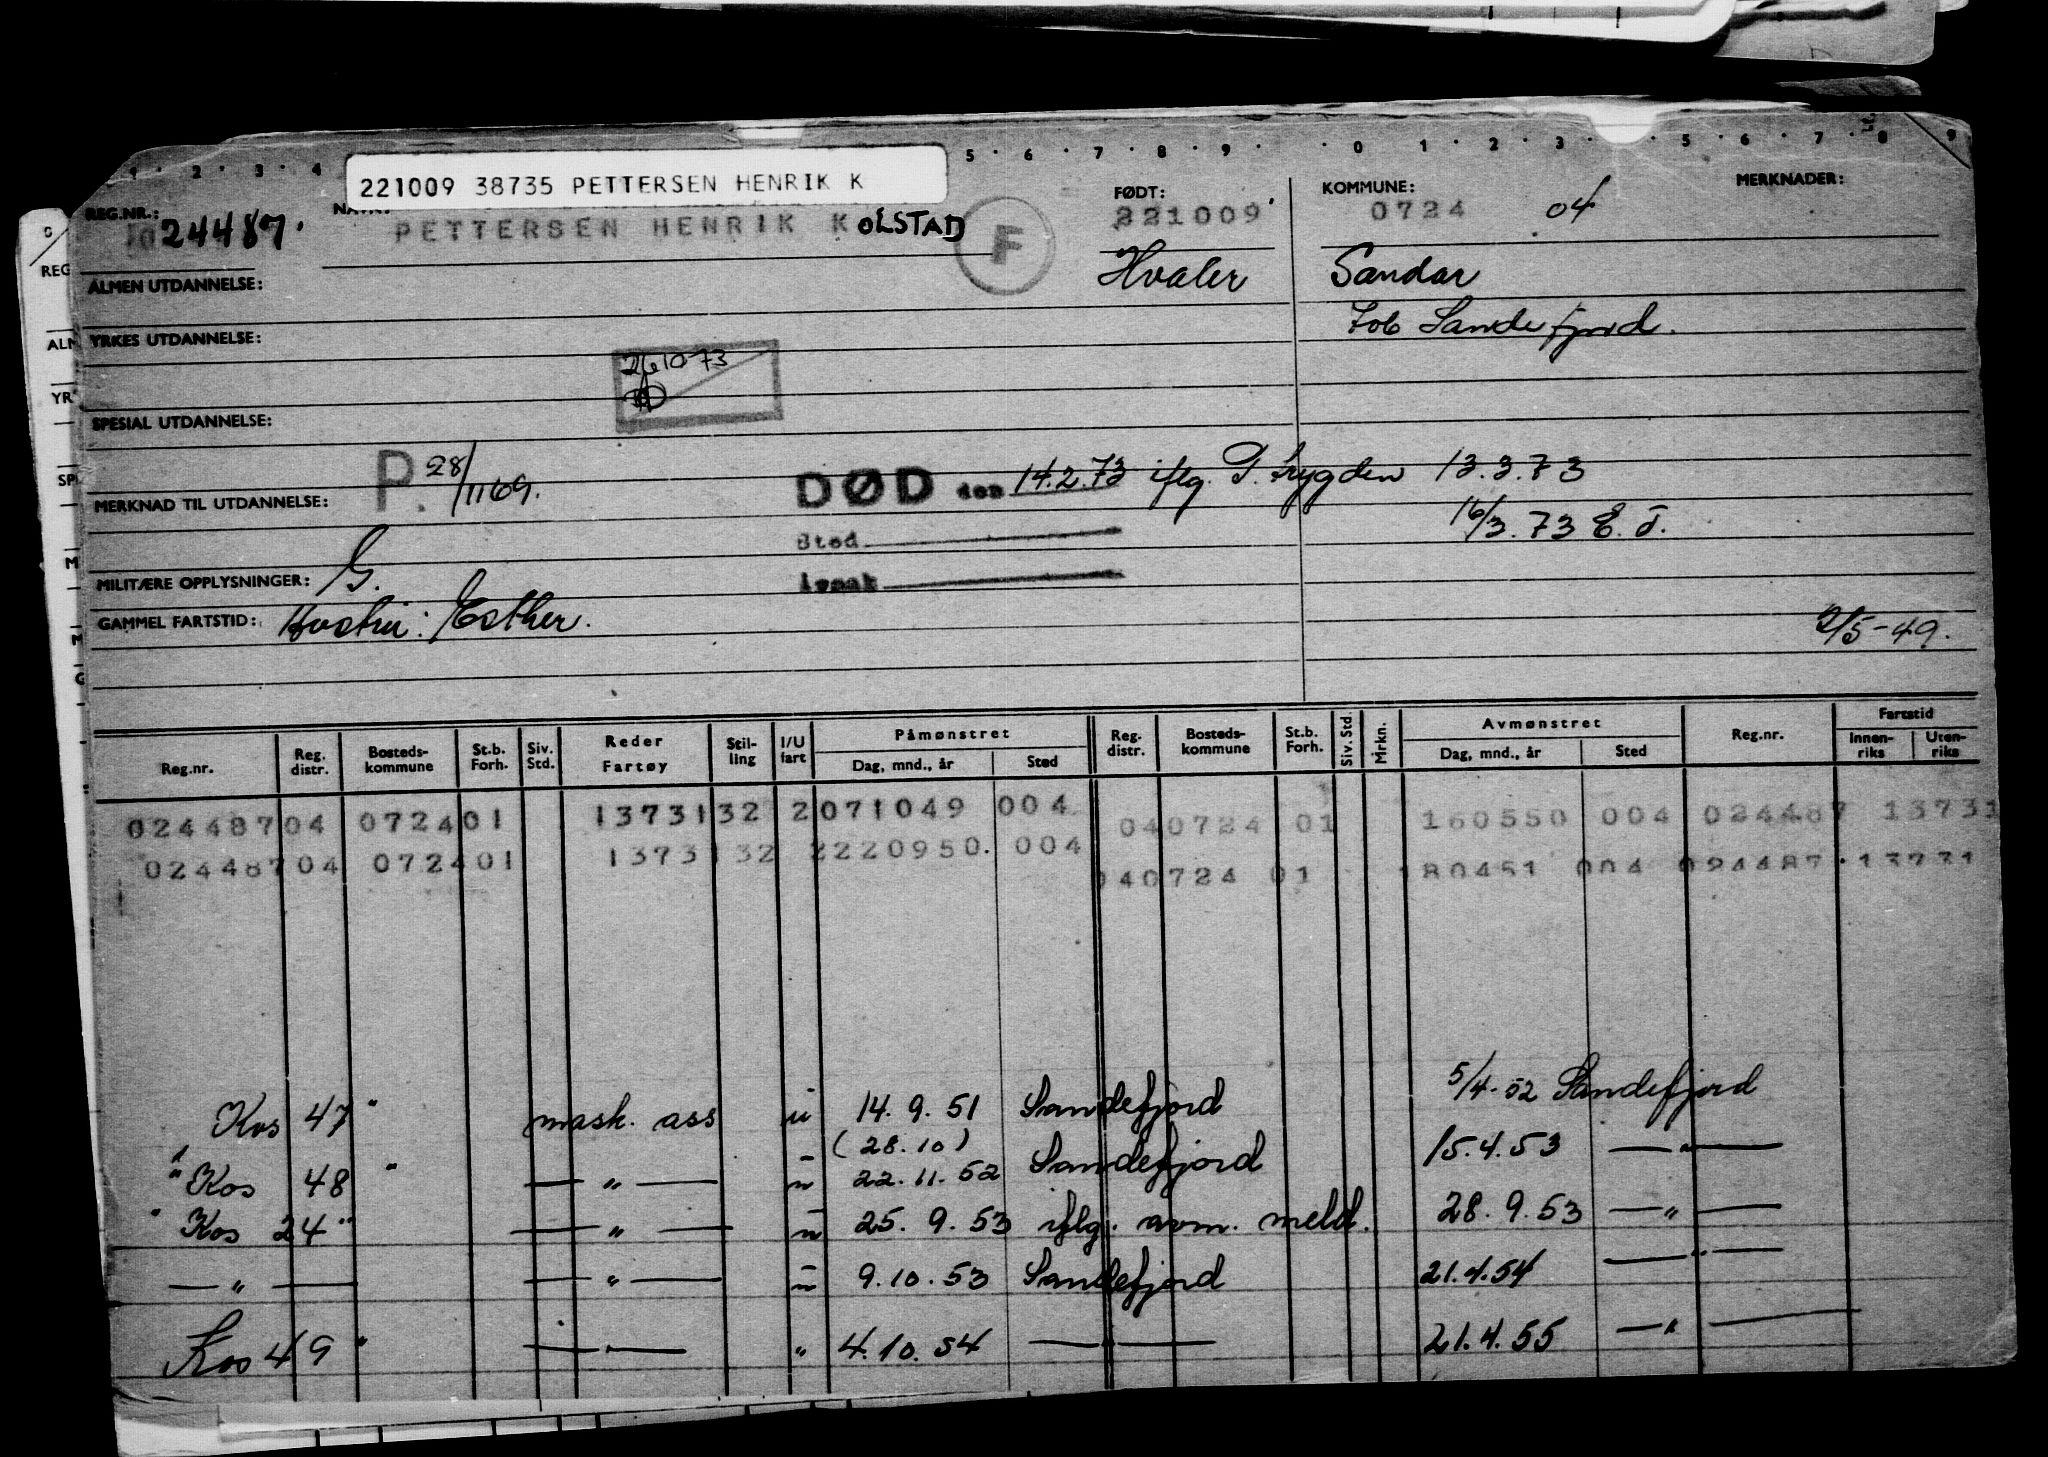 1 · 2 · 3 · 4 5 · 6 · 7 · 8 · 9 · · 0 · 1 · 2 · 3 · 5 · 6 · 7 · 8 9
221009 38735 PETTERSEN HENRIK K
REG.NR.: 24487. FØDT: KOMMUNE: MERKNADER:
PETTERSEN HENRIK KOLSTAD F 221009 0724 04
ALMEN UTDANNELSE: Hvaler Sandar
YRKES UTDANNELSE: Sandefjord.
261073
SPESIAL UTDANNELSE:
MERKNAD TIL UTDANNELSE: P. 28/1169. DØD den 14.2.73 iflg. P. trygden 13.3.73
Sted 16/3.73 E.J.
MILITÆRE OPPLYSNINGER: G. årsak
GAMMEL FARTSTID: Hustru: Esther. 2/5-49.
Reg.nr. Reg. distr. Bosteds-kommune St.b. Forh. Siv. Std. Reder Fartøy Stil-ling I/U fart Påmønstret Dag, mnd., år Sted Reg. distr. Bosteds-kommune St.b. Forh. Siv. Std. Mrkn. Avmønstret Dag, mnd., år Sted Reg.nr. Fartstid Innen-riks Uten-riks
024487 04 0724 01 13731 32 2 071049 004 04 0724 01 160550 004 024487 13731
024487 04 0724 01 13731 32 2 220950. 004 04 0724 01 180451 004 024487 13731
Kos 47 " mask. ass u 14.9.51 Sandefjord 5/4-52 Sandefjord
(28.10)
" Kos 48 " — " — u 22.11.52 Sandefjord 15.4.53 — " —
" Kos 24 " — " — u 25.9.53 iflg. avm. meld. 28.9.53 — " —
— " — — " — u 9.10.53 Sandefjord 21.4.54 — " —
Kos 49 " — " — " 4.10.54 — " — 21.4.55 — " —